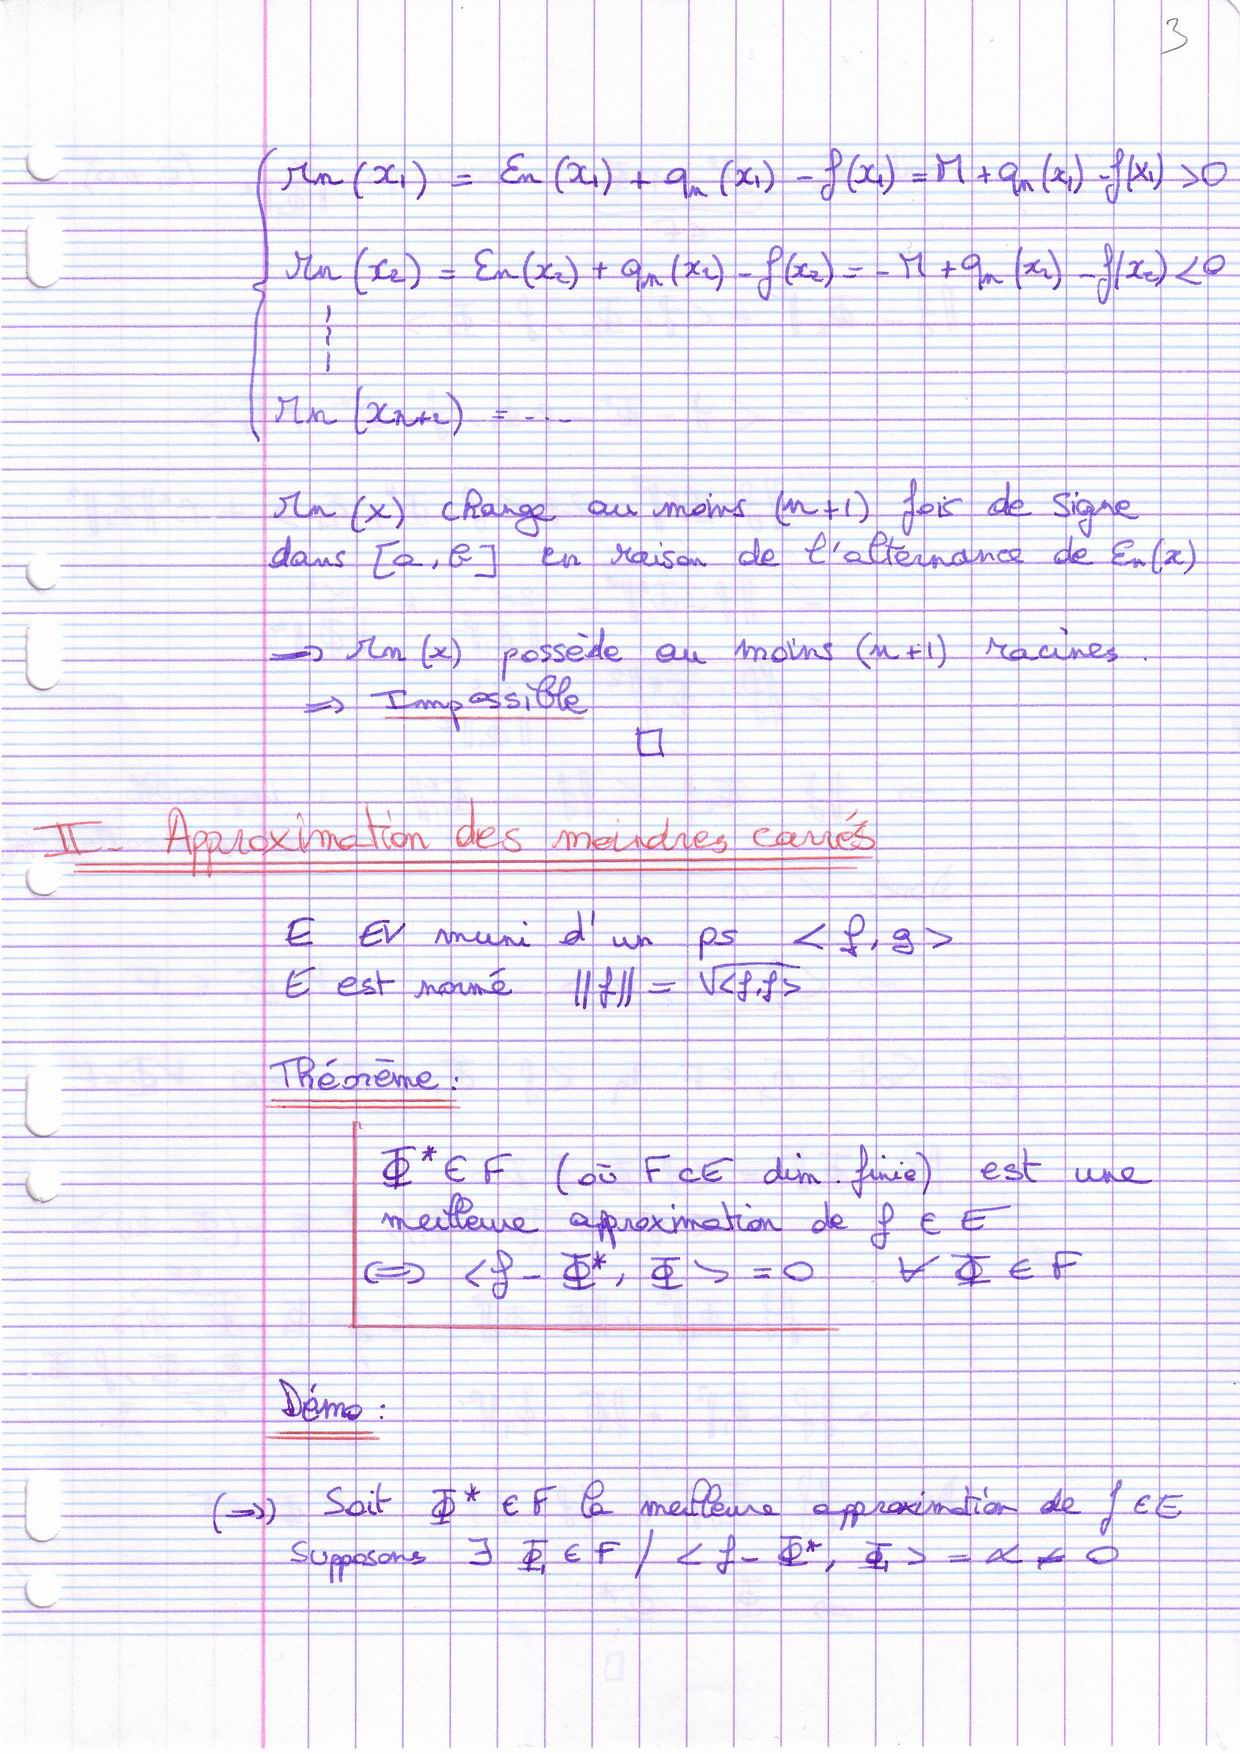 3
rn(x1) = En(x1) + qn(x1) - f(x1) = M + qn(x1) - f(x1) > 0
rn(x2) = En(x2) + qn(x2) - f(x2) = - M + qn(x2) - f(x2) < 0
rn(xn+2) = ...
rn(x) change au moins (n+1) fois de signe
dans [a, b] en raison de l'alternance de En(x)
→ rn(x) possède au moins (n+1) racines.
⇒ Impossible
□
II - Approximation des moindres carrés
E EV muni d'un ps < f, g >
E est normé ||f|| = √<f,f>
Théorème :
Φ* ∈ F (où F ⊂ E dim. finie) est une
meilleure approximation de f ∈ E
⇔ < f - Φ*, Φ > = 0 ∀ Φ ∈ F
Démo :
(⇒) Soit Φ* ∈ F la meilleure approximation de f ∈ E
Supposons ∃ Φ1 ∈ F / < f - Φ*, Φ1 > = α ≠ 0